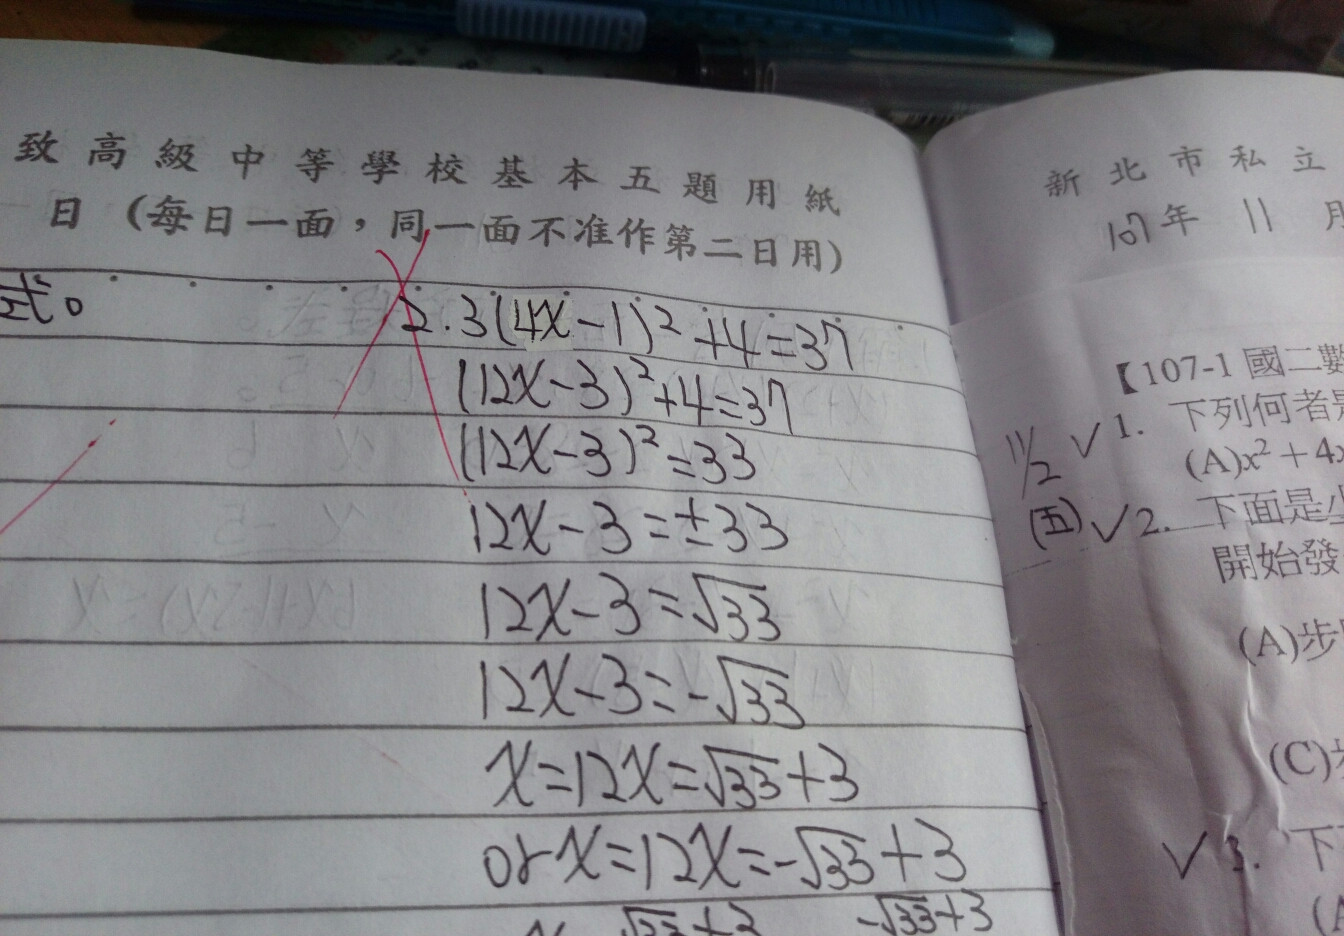 致高級中等學校基本五題用紙
日（每日一面，同一面不准作第二日用）
式。
2. 3(4x-1)²+4=37
(12x-3)²+4=37
(12x-3)²=33
12x-3=±33
12x-3=√33
12x-3=-√33
x=12x=√33+3
or x=12x=-√33+3
√33+3 -√33+3
新北市私立
107年 11 月
【107-1 國二數
11/2
(五)
✓ 1. 下列何者
(A)x²+4x
✓ 2. 下面是
開始發
(A)步
(C)
✓ 3. 下